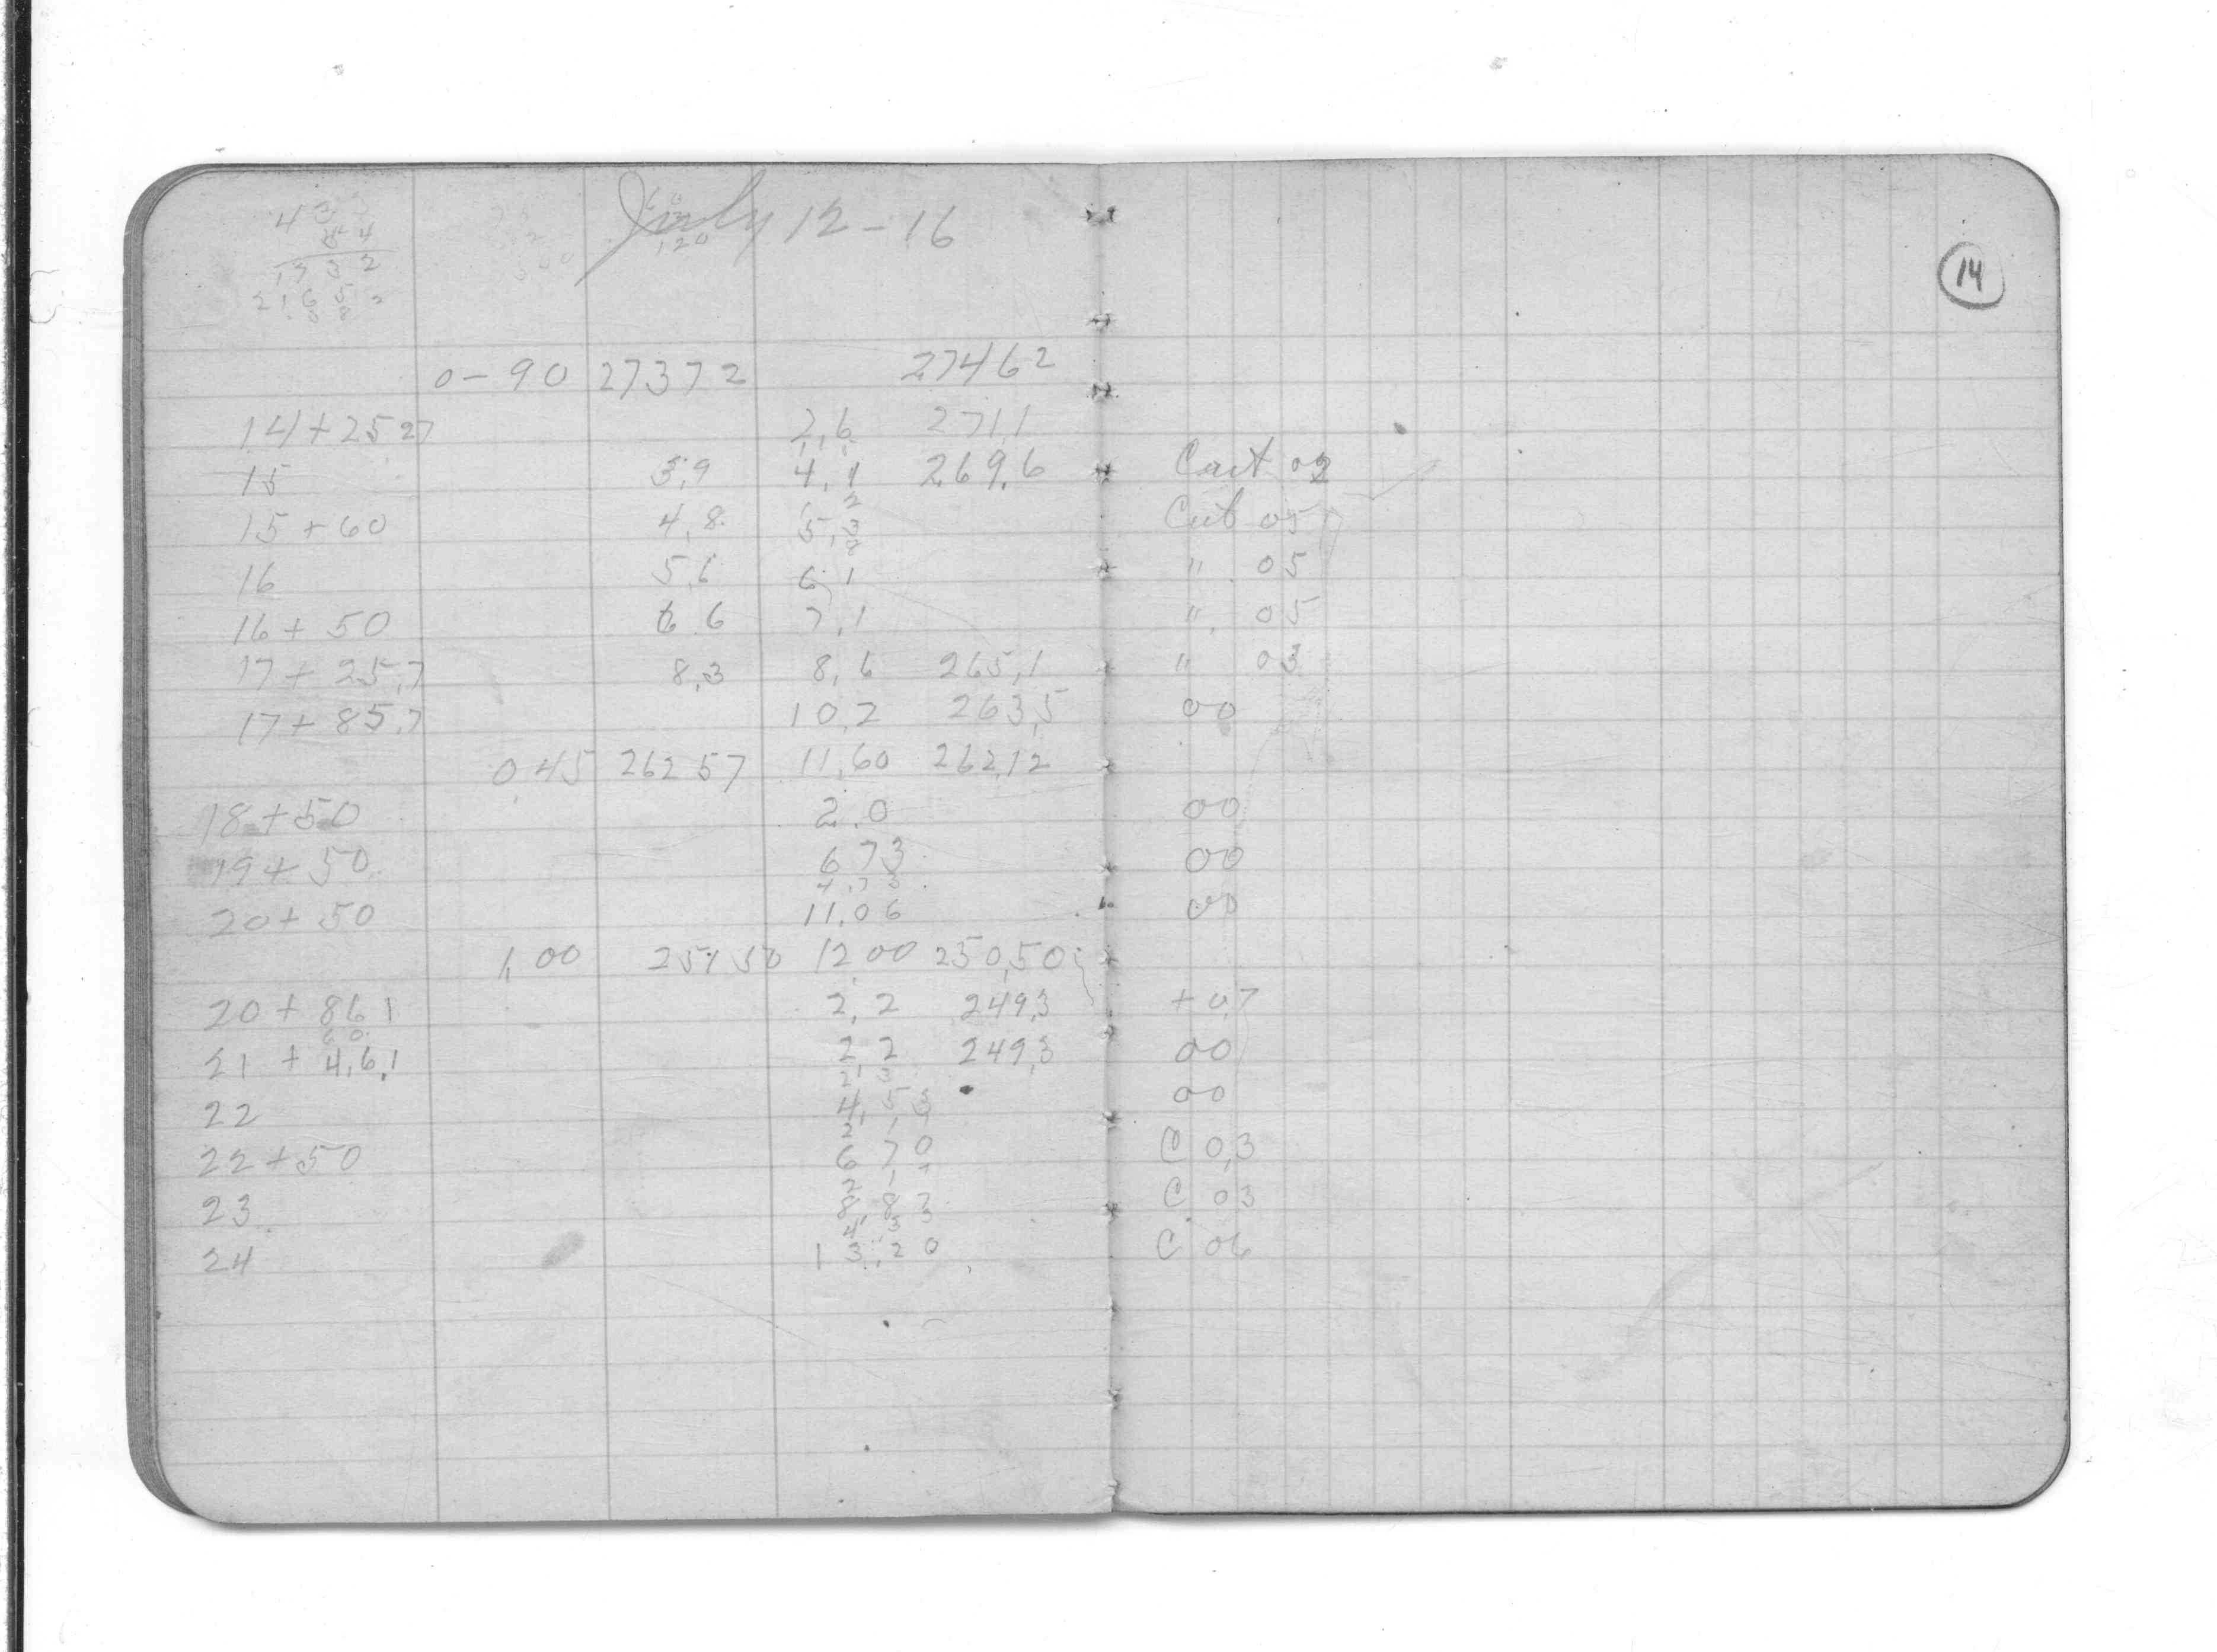 July 12-16
14
433
44
1732
0-90 27372 27462
14+25 27 2,6 271,1
15 3,9 4,1 269,6 Cut 02
15+60 4,8 5,3 Cut 05
16 5,6 6,1 " 05
16+50 6.6 7,1 " 05
17+25,7 8,3 8,6 265,1 " 03
17+85,7 10,2 263,5 00
0,45 26257 11,60 262,12
18+50 2.0 00
19+50 673 00
4,73
20+50 11.06 00
1,00 25150 12,00 250,50
20+86 1 2,2 249,3 +0,7
21+4,6,1 2,2 249,3 00
2,3
22 4,53 00
22+50 6 70 C 0,3
23 8,83 C 03
24 13,20 C 06